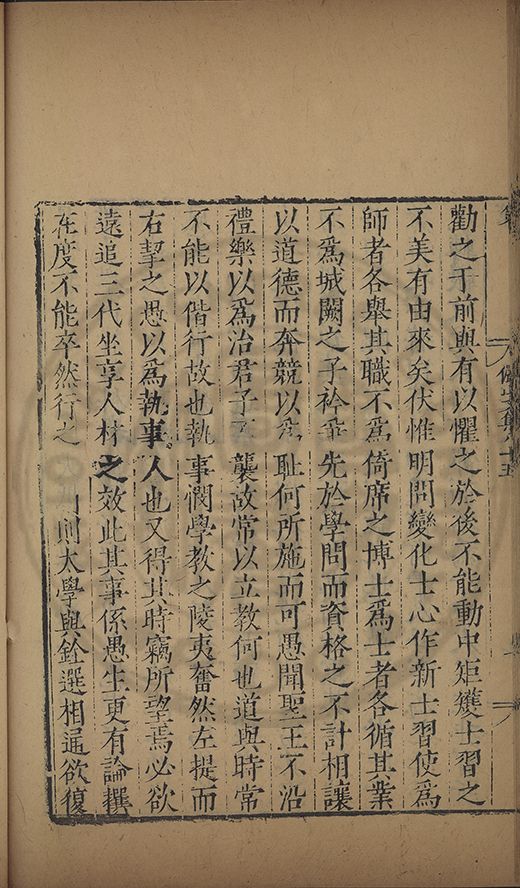 勸之于前與有以懼之於後不能動中矩矱士習之
不美有由來矣伏惟明問變化士心作新士習使爲
師者各舉其職不爲倚席之博士爲士者各循其業
不爲城闕之子衿乖先於學問而資格之不計相讓
以道德而奔競以爲恥何所施而可愚聞聖王不沿
禮樂以爲治君子不襲故常以立教何也道與時常
不能以偕行故也執事憫學教之陵夷奮然左提而
右挈之愚以爲執事人也又得其時竊所望焉必欲
遠追三代坐享人材之效此其事係愚生更有論撰
在度不能卒然行之則太學與銓選相逼欲復